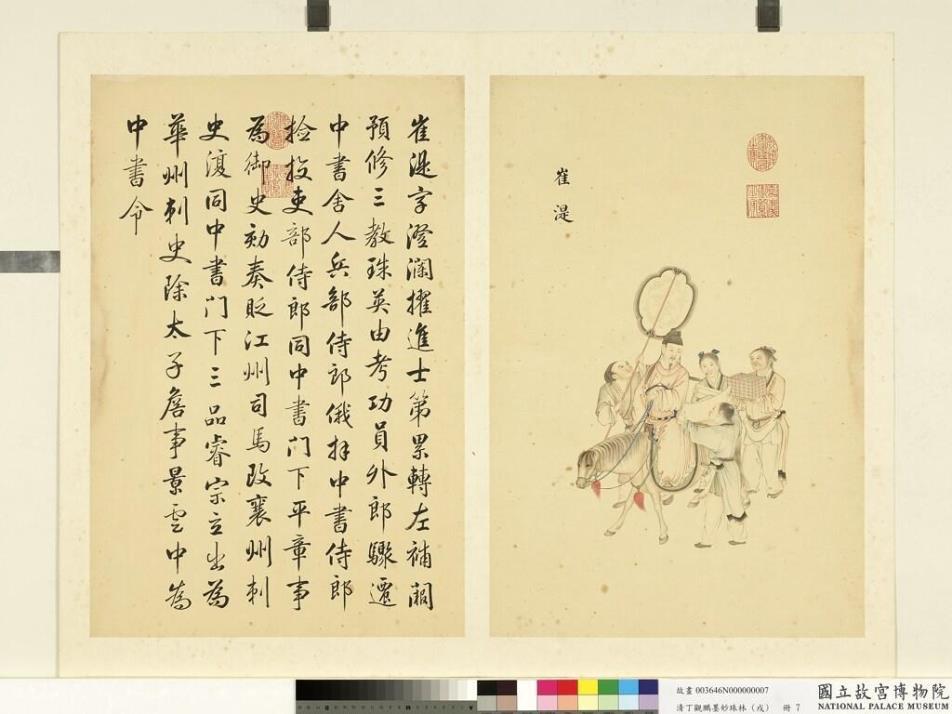 崔湜
崔湜字澄瀾擢進士第累轉左補闕
預修三教珠英由考功員外郎驟遷
中書舍人兵部侍郎俄拜中書侍郎
檢挍吏部侍郎同中書门下平章事
為御史劾奏貶江州司馬改襄州刺
史復同中書门下三品睿宗立出為
華州刺史除太子詹事景雲中為
中書令
故畫 003646N000000007
清丁觀鵬墨妙珠林（戌） 冊 7
國立故宮博物院
NATIONAL PALACE MUSEUM